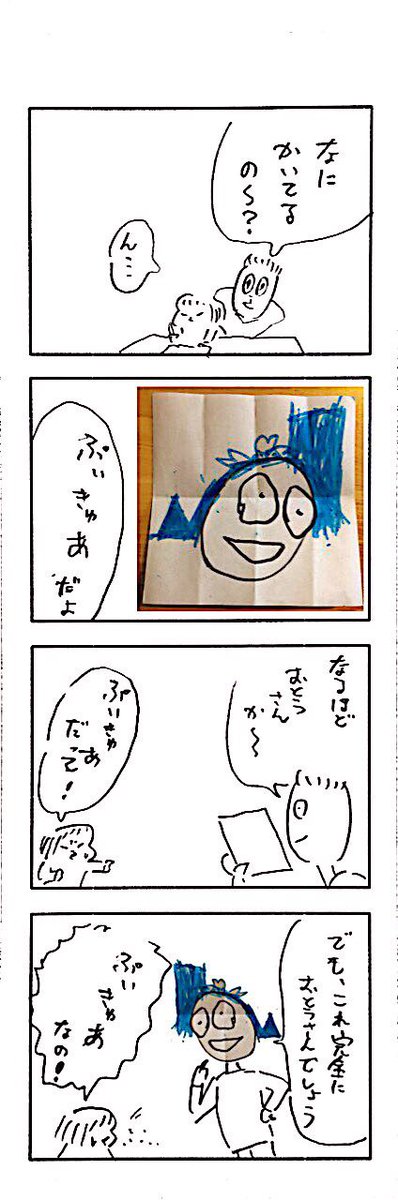 なに
かいてる
の〜?
ん…
ぷぃ
きゅ
あ
だよ
なるほど
おとう
さん
か〜
ぷぃきゅ
あ
だって!
でも、これ完全に
おとうさんでしょう
ぷぃ
きゅ
あ
なの!